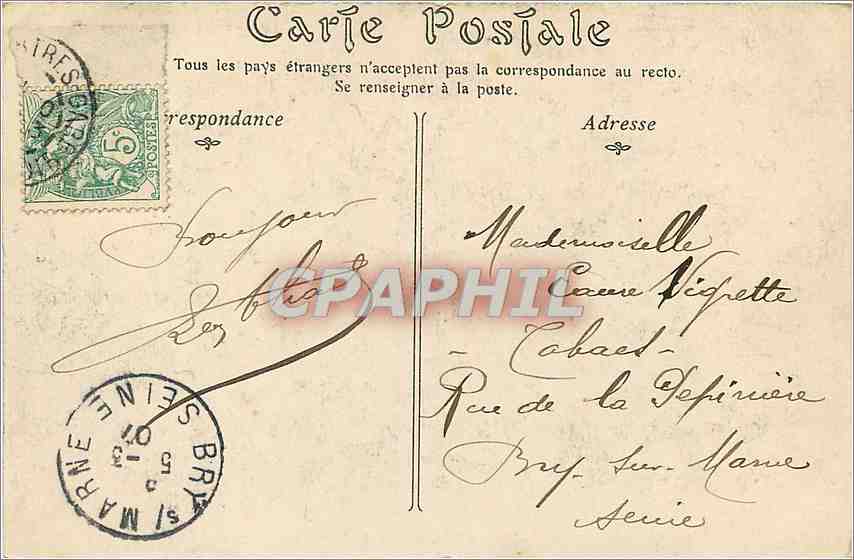 Carte Postale
Tous les pays étrangers n'acceptent pas la correspondance au recto.
Se renseigner à la poste.
respondance
Adresse
5c
POSTES
Mademoiselle
Vigrette
Tabacs-
Rue de la Pépinière
Bry-sur-Marne
Seine
CPAPHIL
BRY s/ MARNE SEINE
5 -3
07